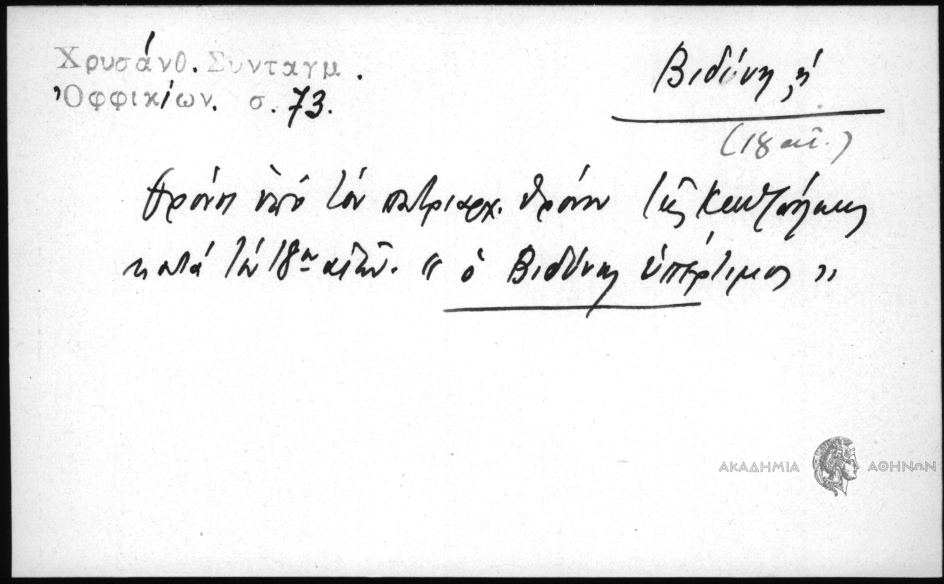 Χρυσάνθ. Συνταγμ.
Ὀφφικίων. σ. 73.
Βιδύνη, ἡ
(18 αἰ.)
θρόνος ὑπὸ τὸν πατριαρχ. θρόνον τῆς Κων/πόλεως
κατὰ τὸν 18ον αἰῶν. "ὁ Βιδύνης ὑπέρτιμος"
ΑΚΑΔΗΜΙΑ ΑΘΗΝΩΝ